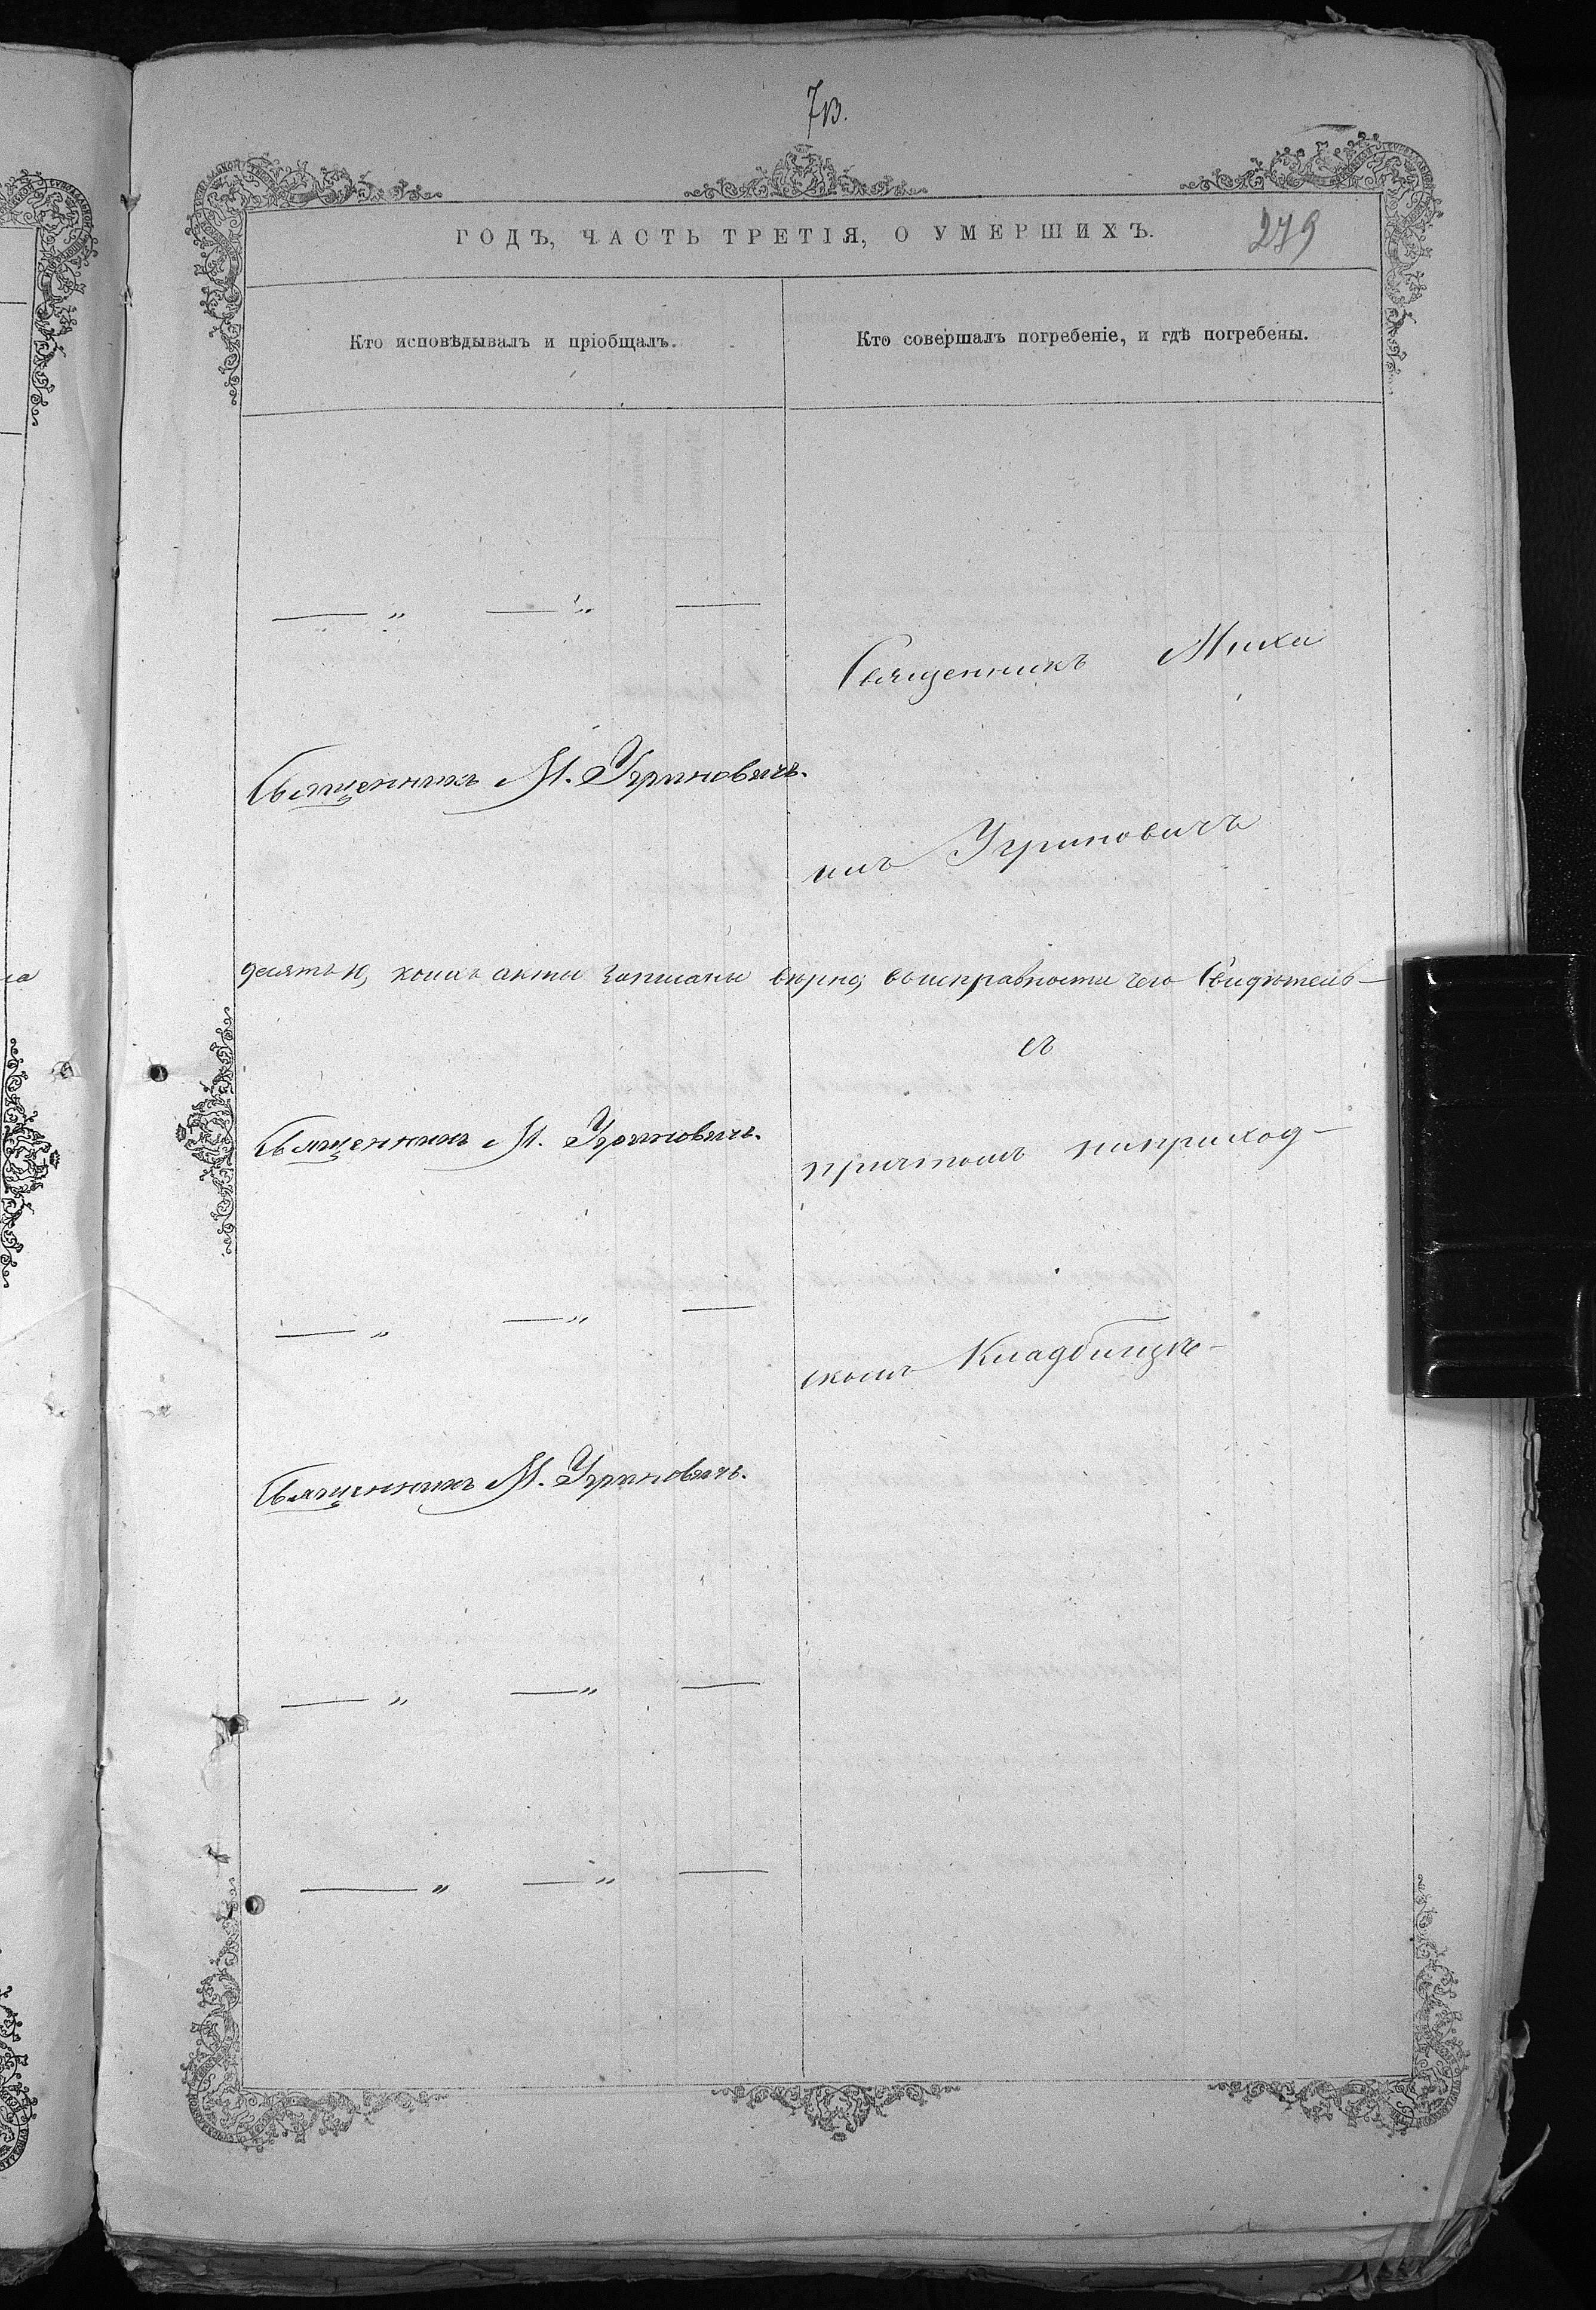 ГОДЪ, ЧАСТЬ ТРЕТІЯ, О УМЕРШИХЪ.
279
Кто исповѣдывалъ и пріобщалъ.
Кто совершалъ погребеніе, и гдѣ погребены.
— „ — „ —
Священникъ Миха
Священникъ М. Угриновичъ.
илъ Угриновичъ
десять и, коихъ акты записаны вѣрно, въ исправности чего Свидѣтель-
съ
Священникъ М. Угриновичъ.
причтомъ наприход-
— „ — „ —
скомъ Кладбищѣ-
Священникъ М. Угриновичъ.
— „ — „ —
— „ — „ —